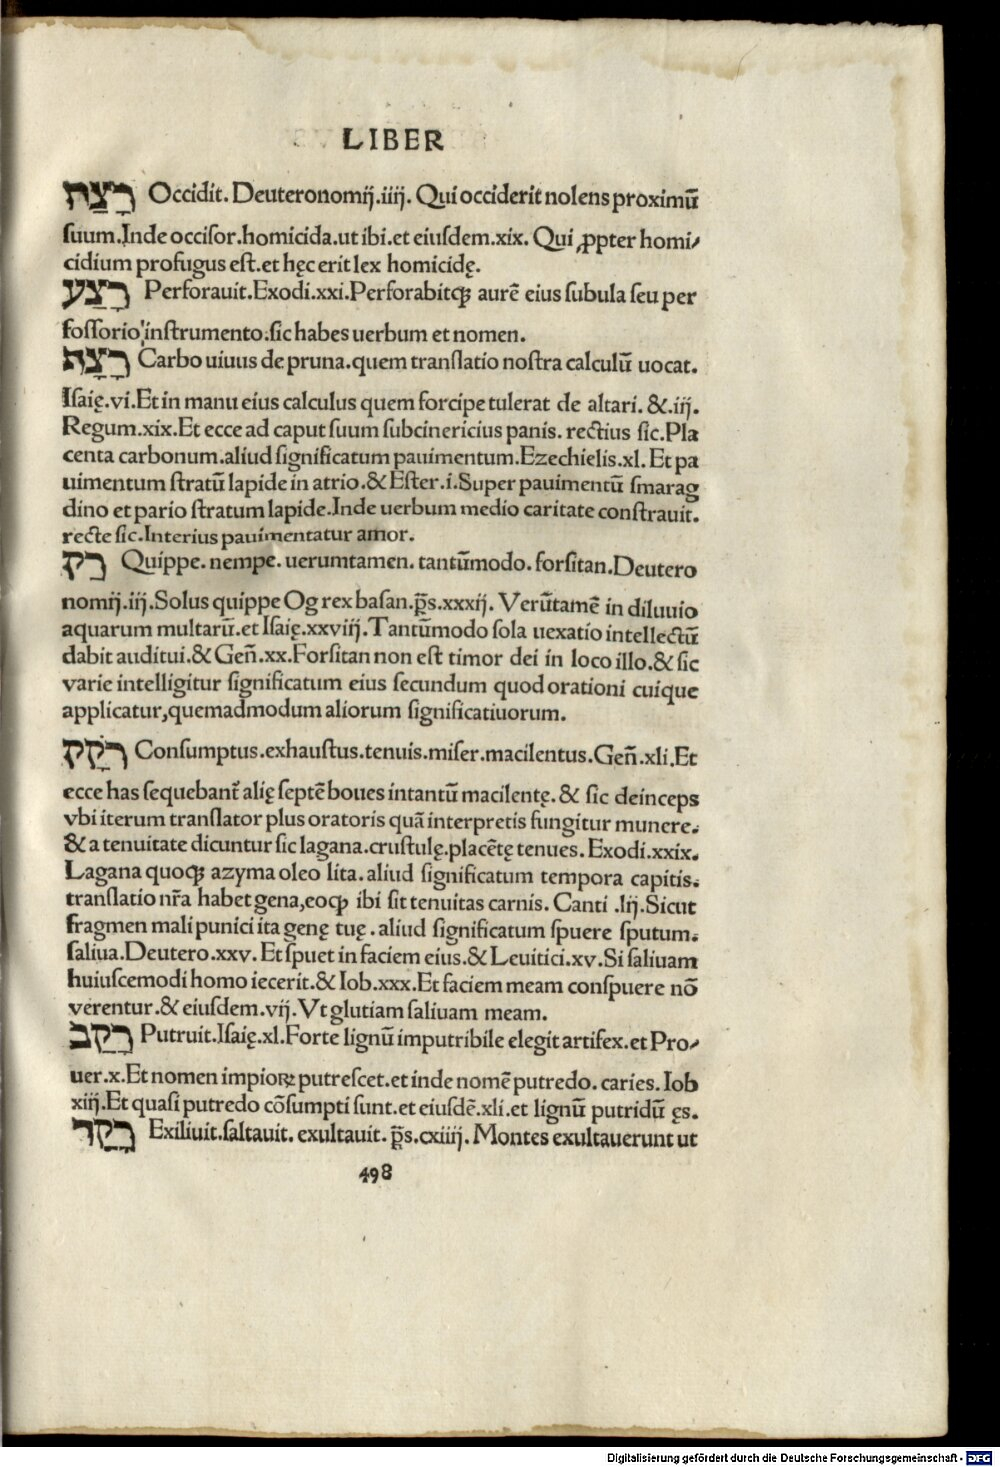 LIBER
רָצַח Occidit. Deuteronomij.iiij. Qui occiderit nolens proximū
ſuum.Inde occiſor.homicida.ut ibi.et eiuſdem.xix. Qui ꝓpter homi⸗
cidium profugus eſt.et hęc erit lex homicidę.
רָצַע Perforauit.Exodi.xxi.Perforabitqꝫ aurē eius ſubula ſeu per
foſſorio inſtrumento:ſic habes uerbum et nomen.
רָצָה Carbo uiuus de pruna.quem tranſlatio noſtra calculū uocat.
Iſaię.vi.Et in manu eius calculus quem forcipe tulerat de altari. &.iij.
Regum.xix.Et ecce ad caput ſuum ſubcinericius panis. rectius ſic.Pla
centa carbonum.aliud ſignificatum pauimentum.Ezechielis.xl. Et pa
uimentum ſtratū lapide in atrio.& Eſter.i.Super pauimentū ſmarag
dino et pario ſtratum lapide.Inde uerbum medio caritate conſtrauit.
recte ſic.Interius pauimentatur amor.
רַק Quippe. nempe. uerumtamen. tantūmodo. forſitan.Deutero
nomij.iij.Solus quippe Og rex baſan.p̄s.xxxij. Verūtamē in diluuio
aquarum multarū.et Iſaię.xxviij.Tantūmodo ſola uexatio intellectū
dabit auditui.& Geñ.xx.Forſitan non eſt timor dei in loco illo.& ſic
varie intelligitur ſignificatum eius ſecundum quod orationi cuique
applicatur,quemadmodum aliorum ſignificatiuorum.
רָקַק Conſumptus.exhauſtus.tenuis.miſer.macilentus.Geñ.xli.Et
ecce has ſequebant᷑ alię ſeptē boues intantū macilentę.& ſic deinceps
vbi iterum tranſlator plus oratoris quā interpretis fungitur munere.
& a tenuitate dicuntur ſic lagana.cruſtulę.placētę tenues. Exodi.xxix.
Lagana quoqꝫ azyma oleo lita.aliud ſignificatum tempora capitis.
tranſlatio nr̄a habet gena,eoqꝫ ibi ſit tenuitas carnis. Canti .iij.Sicut
fragmen mali punici ita genę tuę.aliud ſignificatum ſpuere ſputum.
ſaliua.Deutero.xxv. Et ſpuet in faciem eius.& Leuitici.xv. Si ſaliuam
huiuſcemodi homo iecerit.& Iob.xxx.Et faciem meam conſpuere nō
verentur.& eiuſdem.vij. Vt glutiam ſaliuam meam.
רָקַב Putruit.Iſaię.xl.Forte lignū imputribile elegit artifex.et Pro⸗
uer.x.Et nomen impioꝝ putreſcet.et inde nomē putredo. caries. Iob
xiij.Et quaſi putredo cōſumpti ſunt.et eiuſdē.xli.et lignū putridū ęs.
רָקַד Exiliuit.ſaltauit. exultauit. p̄s.cxiiij. Montes exultauerunt ut
498
Digitalisierung gefördert durch die Deutsche Forschungsgemeinschaft - DFG